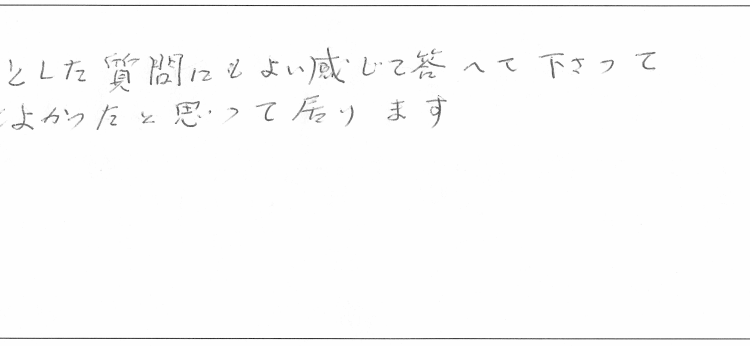 とした質問にもよい感じで答へて下さって
よかったと思って居ります